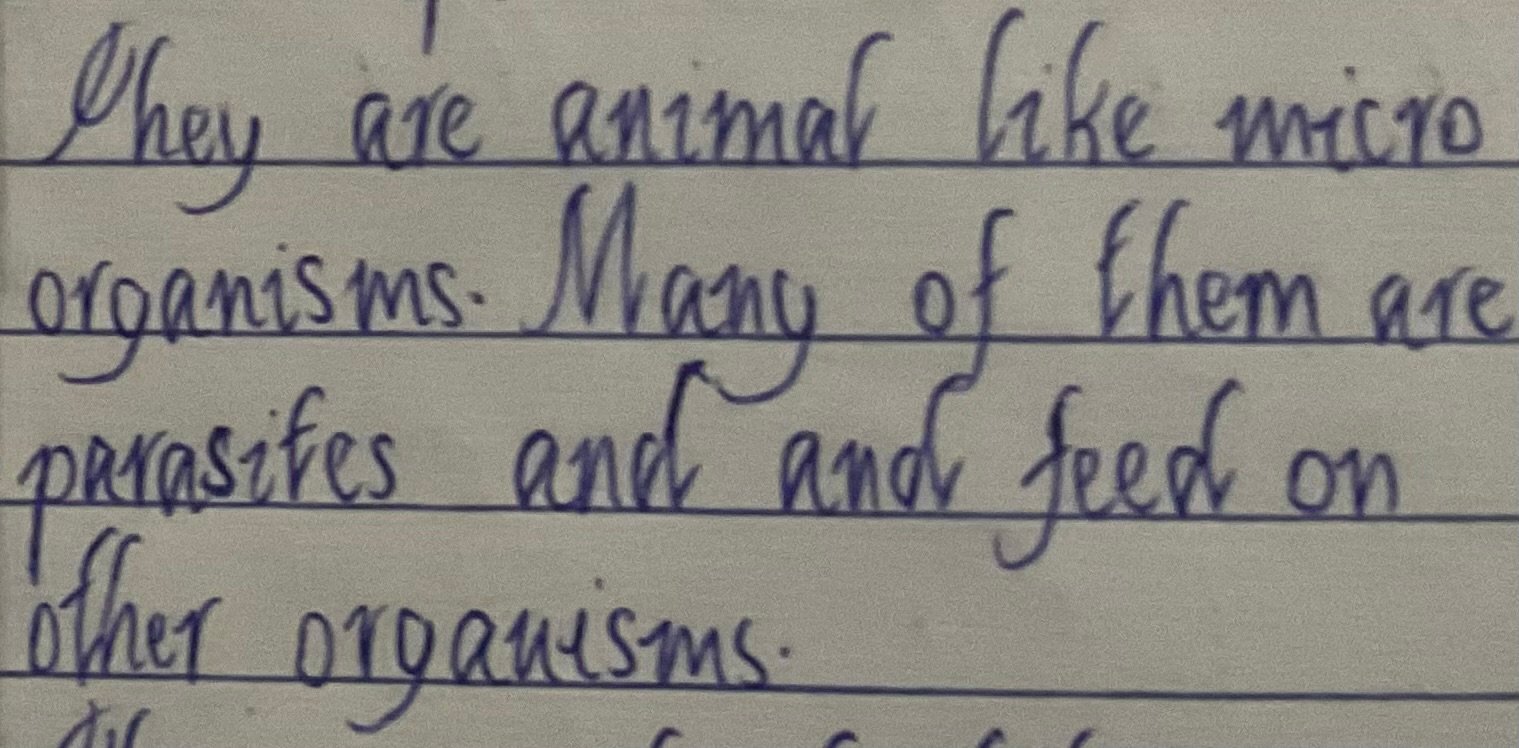 They are animal like micro
organisms. Many of them are
parasites and and feed on
other organisms.